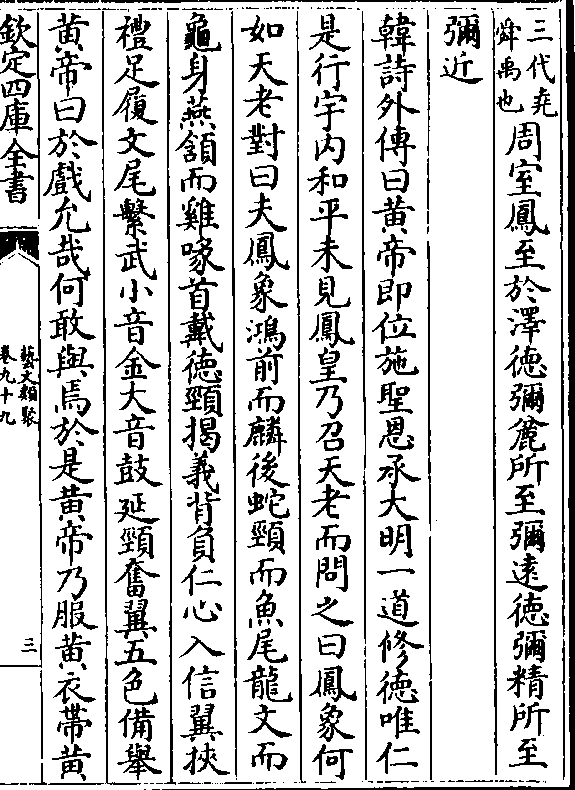 三代堯
舜禹也
周室鳳至於澤德彌麄所至彌遠德彌精所至
彌近
韓詩外傳曰黄帝即位施聖恩承大明一道修德唯仁
是行宇内和平未見鳳皇乃召天老而問之曰鳳象何
如天老對曰夫鳳象鴻前而麟後蛇頸而魚尾龍文而
龜身燕頷而雞喙首戴德頸揭義背負仁心入信翼挾
禮足履文尾繫武小音金大音鼓延頸奮翼五色備舉
黄帝曰於戲允哉何敢與焉於是黄帝乃服黄衣帶黄
欽定四庫全書
藝文類聚
卷九十九
三